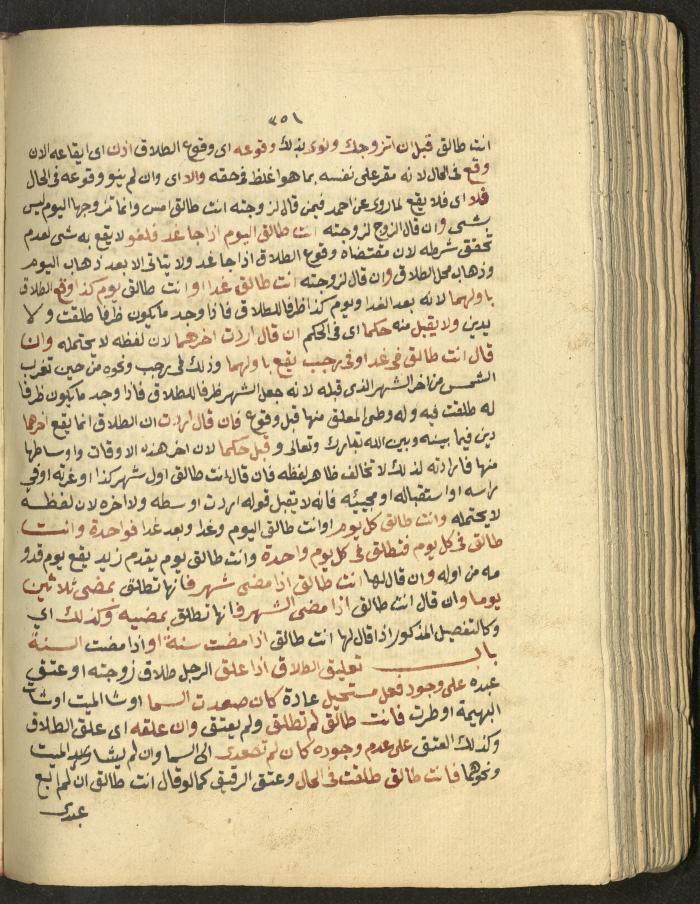 ٢٥١
انت طالق قبل ان اتزوجك ونوى بذلك وقوعه اى وقوع الطلاق اذن اى ايقاعه الان
وقع فى الحال لانه مقر على نفسه بما هو اغلظ فى حقه والا اى وان لم ينو وقوعه فى الحال
فلا اى فلا يقع لما روى عن احمد فيمن قال لزوجته انت طالق امس وانما تزوجها اليوم ليس
بشى وان قال الزوج لزوجته انت طالق اليوم اذا جا غد فلغو لا يقع به شى لعدم
تحقق شرطه لان مقتضاه وقوع الطلاق اذا جا غد ولا يتاتى الا بعد ذهاب اليوم
وذهاب محل الطلاق وان قال لزوجته انت طالق غدا او انت طالق يوم كذا وقع الطلاق
باولهما لانه بعد الغد او يوم كذا ظرفا للطلاق فاذا وجد ما يكون ظرفا طلقت ولا
يدين ولا يقبل منه حكما اى فى الحكم ان قال اردت اخرهما لان لفظه لا يحتمله وان
قال انت طالق فى غد او فى رجب يقع باولهما وذلك فى رجب ونحوه من حين تغرب
الشمس من اخر الشهر الذى قبله لانه جعل الشهر ظرفا للطلاق فاذا وجد ما يكون ظرفا
له طلقت فيه وله وطى المعلق منها قبل وقوع فان قال اردت ان الطلاق انما يقع اخرهما
دين فيما بينه وبين الله تبارك وتعالى وقبل حكما لان اخر هذه الاوقات واوساطها
منها فارادته لذلك لا تخالف ظاهر لفظه فان قال انت طالق اول شهر كذا او غرته او فى
راسه او استقباله او مجيئه فانه لا يقبل قوله اردت اوسطه ولا اخره لان لفظه
لا يحتمله وانت طالق كل يوم او انت طالق اليوم وغدا وبعد غد فواحدة وانت
طالق فى كل يوم فتطلق فى كل يوم واحدة وانت طالق يوم يقدم زيد يقع يوم قدو
مه من اوله وان قال لها انت طالق اذا مضى شهر فانها تطلق بمضى ثلاثين
يوما وان قال انت طالق اذا مضى الشهر فانها تطلق بمضيه وكذلك اي
وكالتفصيل المذكور اذا قال لها انت طالق اذا مضت سنة او اذا مضت السنة
باب تعليق الطلاق اذا علق الرجل طلاق زوجته او عتق
عبده على وجود فعل مستحيل عادة كان صعدت السما او شا الميت او شات
البهيمة او طرت فانت طالق لم تطلق ولم يعتق وان علقه اى علق الطلاق
وكذلك العتق على عدم وجوده كان لم تصعدى الى السما وان لم يشا الميت
ونحوهما فانت طالق طلقت فى الحال وعتق الرقيق كما لو قال انت طالق ان لم ابع
عبدى